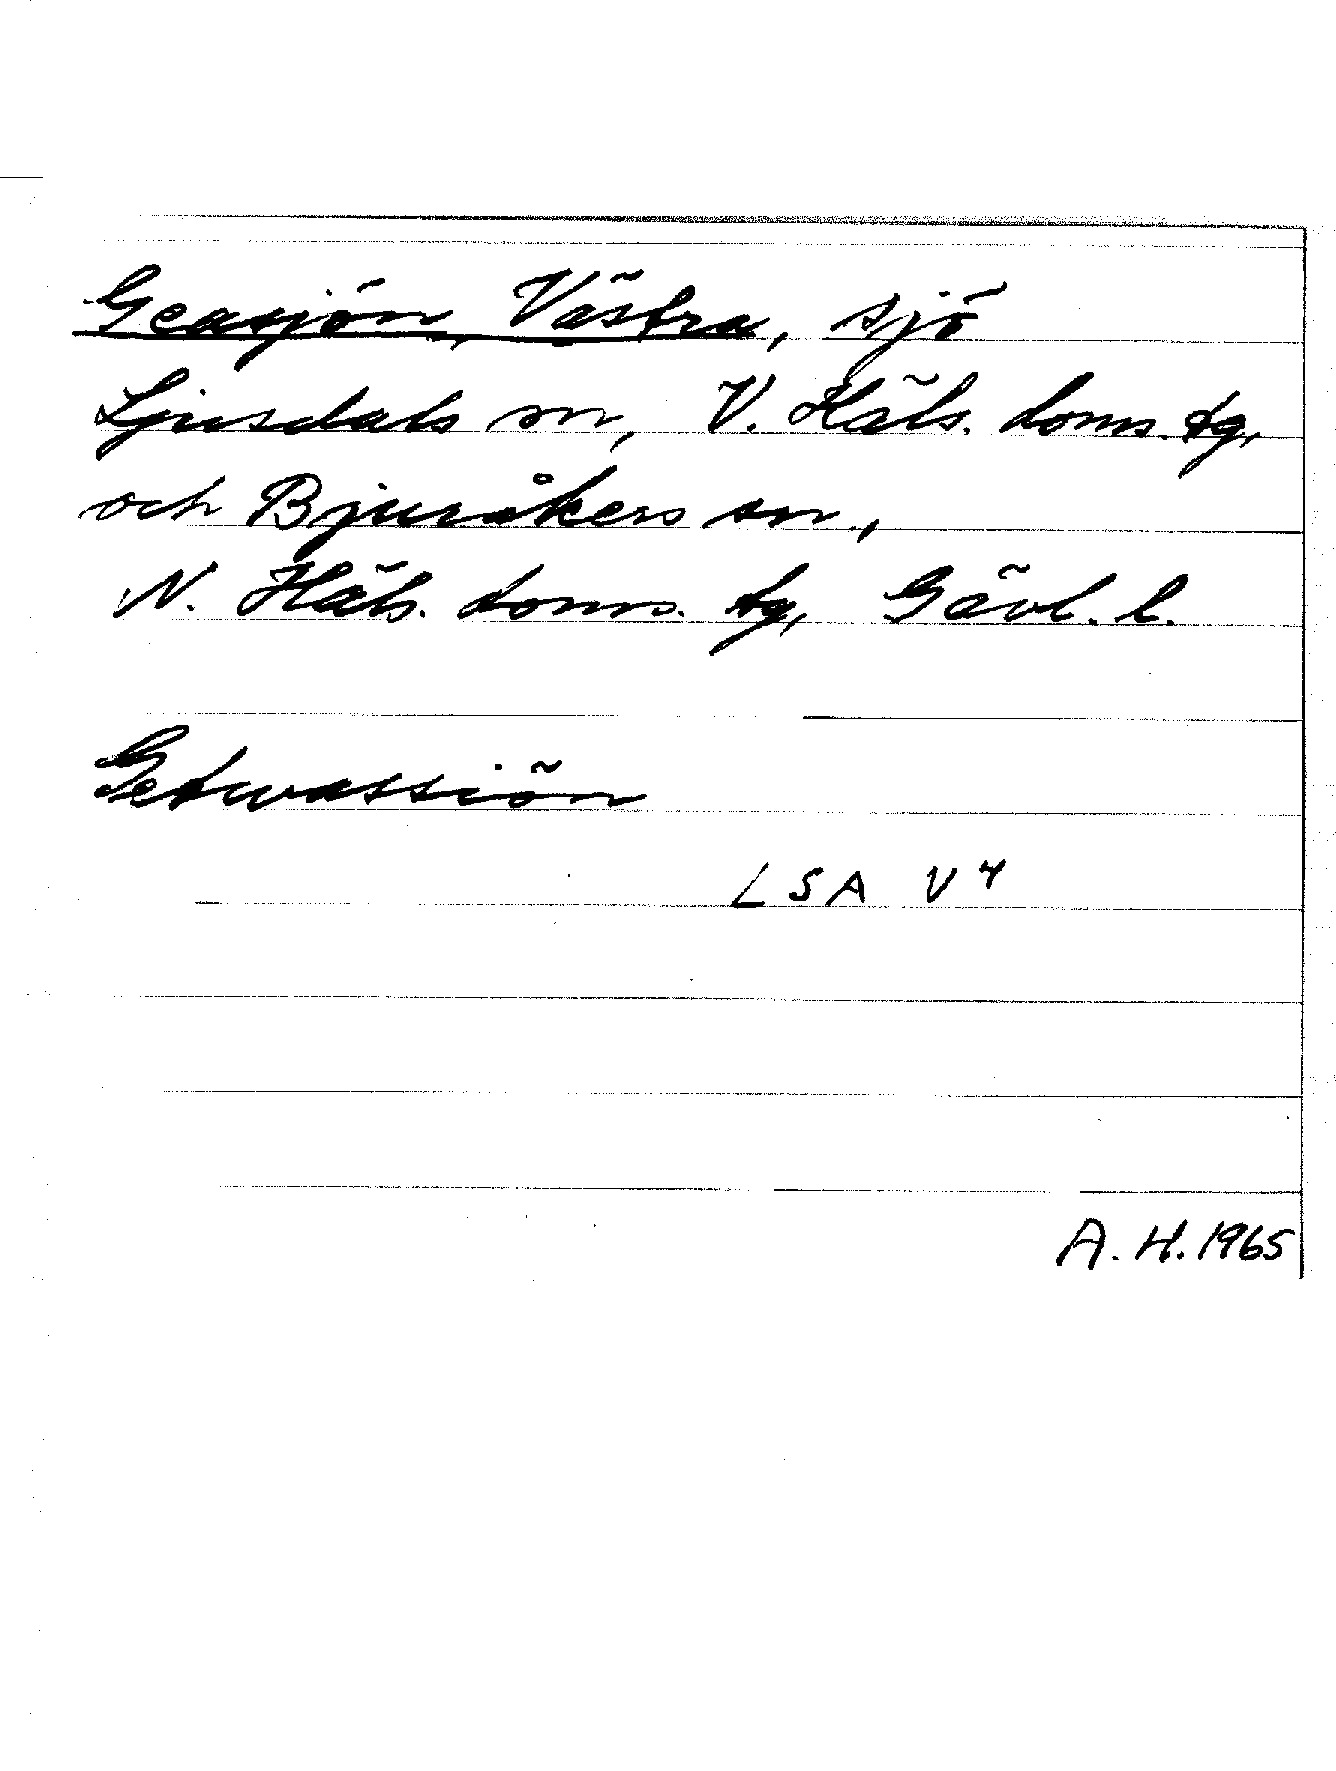 Geasjön, Västra, sjö
Ljusdals sn, V. Häls. doms. tg,
och Bjuråkers sn.,
N. Häls. doms. tg, Gävl. l.
Getwassiön
LSA V4
A. H. 1965